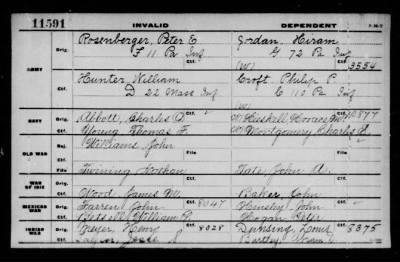 11591 INVALID DEPENDENT
Orig. Rosenberger, Peter E Jordan, Hiram
F 11 Pa Inf G 72 Pa Inf
Ctf. (W) 3554
ARMY
Orig. Hunter, William Croft, Philip P.
D 22 Mass Inf C 110 Pa Inf
Ctf. (W)
NAVY Orig. Abbott, Charles A Haskell Horace
Ctf. Young Thomas F. Montgomery Charles A.
Rej. Williams John
OLD WAR Orig.
Ctf. Twining Nathan Tate, John A.
WAR OF 1812 Orig.
Ctf. Wood, James W. Baker, John
MEXICAN WAR Orig. Farren John 8047 Hensley John
Ctf. Betsell William R. Hogan Peter
INDIAN WARS Orig. Meyer Henry 8028 Dunsing Louis 5375
Ctf.